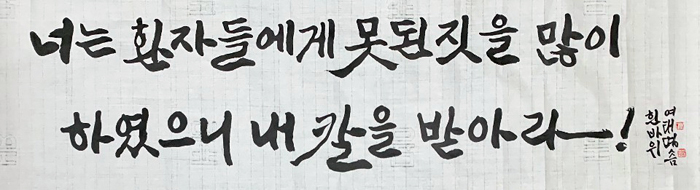 너는 환자들에게 못된짓을 많이
하였으니 내 칼을 받아라—!
흰바위